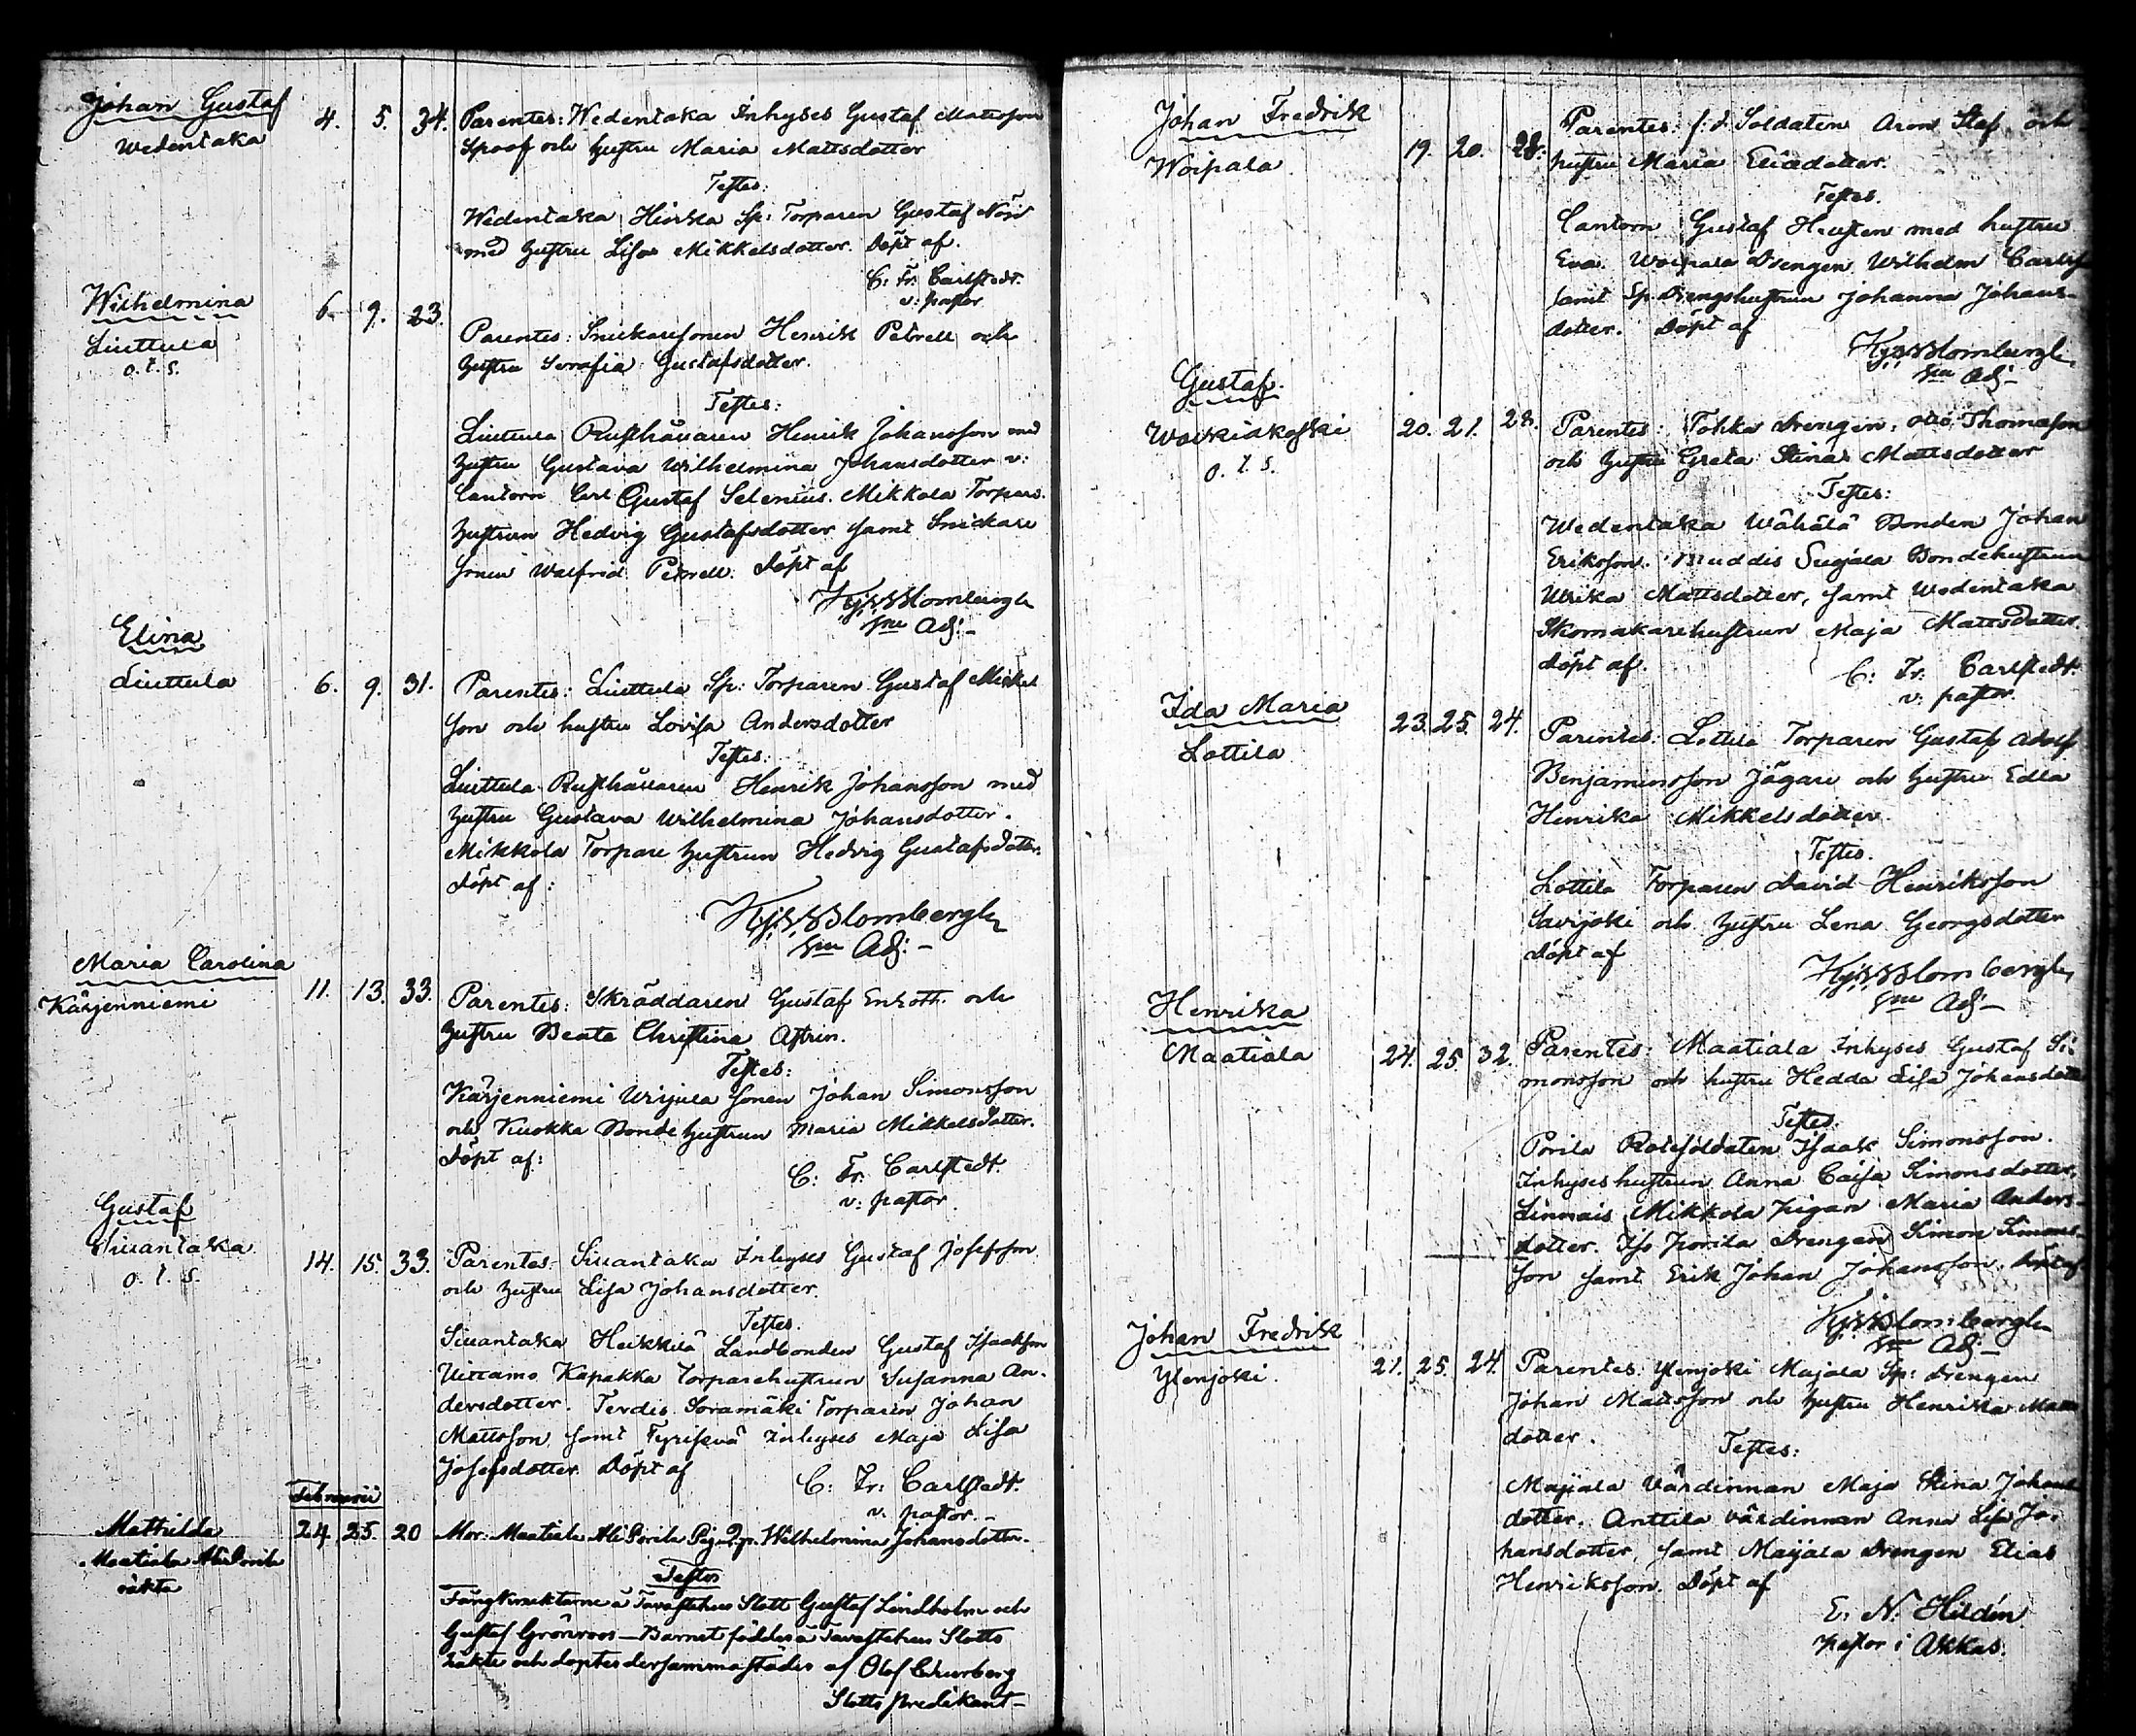 Johan Gustaf
Wedentaka
4. 5. 34. Parentes: Wedentaka Inhyses Gustaf Mattsson
Spoof och hustru Maria Mattsdotter
Testes:
Wedentaka Hirska Sp: Torparen Gustaf
med hustru Lisa Mikkelsdotter. Döpt af.
C: Fr: Carlstedt.
v: pastor
Wilhelmina
Liuttula
o. t. s.
6. 9. 23.
Parentes: Snickaresonen Henrik Petrell och
hustru Serafia Gustafsdotter.
Testes:
Liuttula Rusthållaren Henrik Johansson med
hustru Gustava Wilhelmina Johansdotter v:
Cantorn Carl Gustaf Selenius. Mikkola Torpare
hustrun Hedvig Gustafsdotter samt Snickare
sonen Walfrid Petrell. Döpt af
Blombergh
Adj:
Elina
Liuttula
6. 9. 31. Parentes: Liuttula Sp: Torparen Gustaf Mickel
son och hustru Lovisa Andersdotter
Testes:
Liuttula Rusthållaren Henrik Johansson med
hustru Gustava Wilhelmina Johansdotter.
Mikkola Torpare hustrun Hedvig Gustafsdotter.
Döpt af:
Blombergh
Adj:
Maria Carolina
Kärjenniemi
11. 13. 33. Parentes: Skräddaren Gustaf Enroth och
hustru Beata Christina Astrin.
Testes:
Kärjenniemi Urijula sonen Johan Simonsson
och Kuokka Bonde hustrun Maria Mikkelsdotter.
Döpt af:
C: Fr: Carlstedt
v: pastor.
Gustaf
Siuantaka
o. t. s.
14. 15. 33. Parentes: Siuantaka Inhyses Gustaf Josefsson
och hustru Lisa Johansdotter.
Testes.
Siuantaka Heikkilä Landbonden Gustaf Isaaksson
Uittamo Kapakka Torparehustrun Susanna An-
dersdotter. Terdis Soramäki Torparen Johan
Mattsson samt Inhyses Maja Lisa
Josefsdotter. Döpt af
C: Fr: Carlstedt.
v. pastor.
Februarii
Mathilda
Maatiala Ali Porila
oäkta
24. 25. 20 Mor: Maatiala Ali Porila Piga Wilhelmina Johansdotter.
Testes
Fångknektarne å Tavastehus Slott Gustaf Lindholm och
Gustaf Grönroos — Barnet föddes å Tavastehus Slotts
häkte och döptes dersammastädes af Olof
Slotts predikant—
Johan Fredrik
Woipala
19. 20. 28. Parentes: f: d. Soldaten Aron Staf och
hustru Maria Eliædotter.
Testes.
Cantorn Gustaf Heusten med hustru
Eva. Woipala Drengen Wilhelm Carlss
samt Sp. Drengshustrun Johanna Johans-
dotter. Döpt af
Blombergh
Adj—
Gustaf
Waikiakoski
o. t. s.
20. 21. 28. Parentes: Tohka Drengen Otto Thomasson
och hustru Greta Stina Mattsdotter
Testes:
Wedentaka Wähälä Bonden Johan
Eriksson. Muddis Sugala Bondehustrun
Ulrika Mattsdotter, samt Wedentaka
Skomakarehustrun Maja Mattsdotter.
Döpt af.
C: Fr: Carlstedt.
v: pastor.
Ida Maria
Lottila
23. 25. 24. Parentes: Lottila Torparen Gustaf Adolf
Benjaminsson Jägare och hustru Edla
Henrika Mikkelsdotter.
Testes.
Lottila Torparen David Henriksson
Savijoki och hustru Lena Georgsdotter
Döpt af
Blombergh
Adj—
Henrika
Maatiala
24. 25. 32. Parentes: Maatiala Inhyses Gustaf Si-
monsson och hustru Hedda Lisa Johansdott
Testes.
Porila Rotesoldaten Isaak Simonsson.
Inhyseshustrun Anna Caisa Simonsdotter.
Linnais Mikkola pigan Maria Anders-
dotter. Iso porila Drengen Simon Simons-
son samt Erik Johan Johansson. Döpt af
Blombergh
Adj—
Johan Fredrik
Ylenjoki.
21. 25. 24. Parentes: Ylenjoki Majala Sp: Drengen
Johan Mattsson och hustru Henrika Matts
dotter.
Testes:
Majala Värdinnan Maja Stina Johans
dotter. Anttila värdinnan Anna Lisa Jo-
hansdotter, samt Maijala Drengen Elias
Henriksson. Döpt af
E. N. Hildén.
pastor i Akkas.